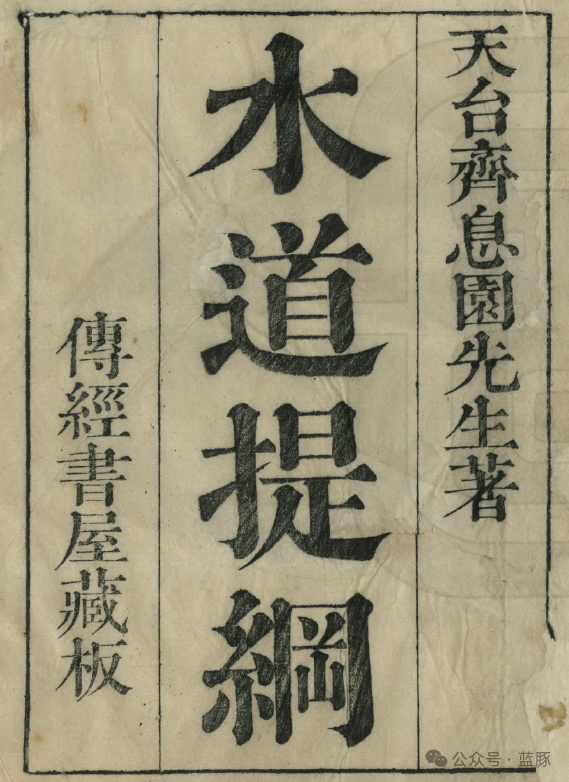 天台齊息園先生著
水道提綱
傳經書屋藏板
公众号·蓝豚